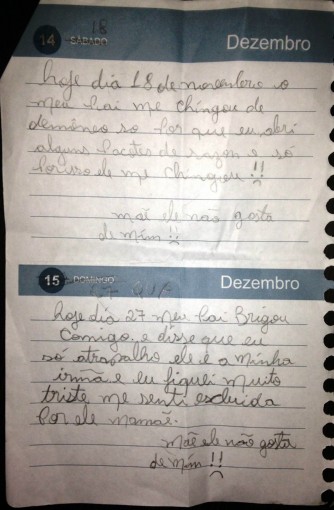 18
14 SÁBADO Dezembro
hoje dia 18 de novembro o
meu pai me chingou de
demôneo so por que eu abri
alguns pacotes de e só
por isso ele me chingou!!
mãe ele não gosta
de mim!!
15 DOMINGO Dezembro
27
hoje dia 27 meu pai Brigou
comigo. e disse que eu
só atrapalho ele e a minha
irmã e eu fiquei muito
triste me senti escluida
por ele mamãe.
mãe ele não gosta
de mim!!